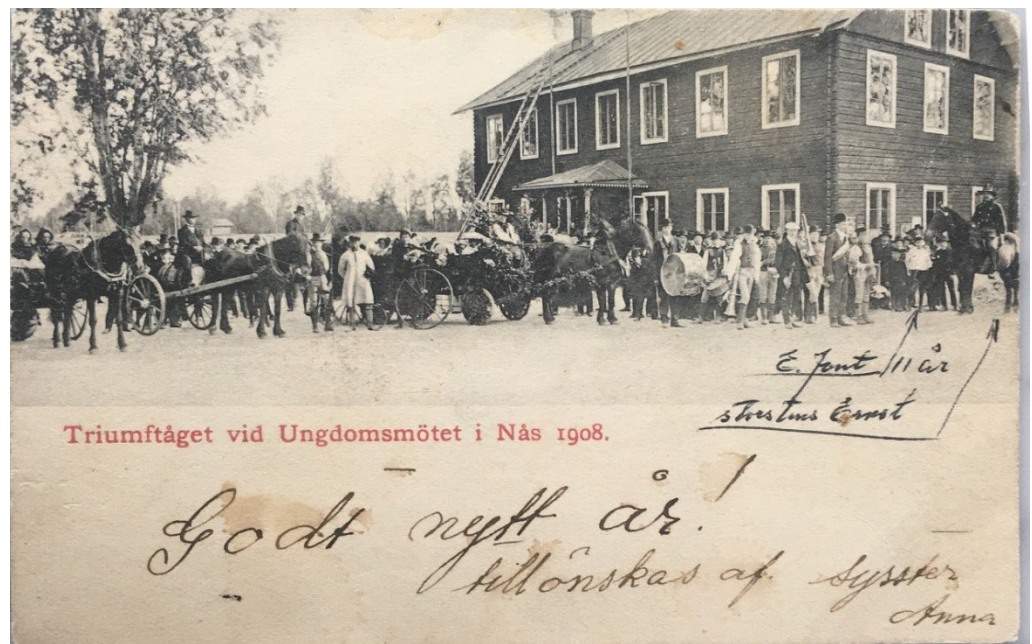 E. Jont 11 år
Ernst
Triumftåget vid Ungdomsmötet i Nås 1908.
Godt nytt år!
tillönskas af Syster
Anna